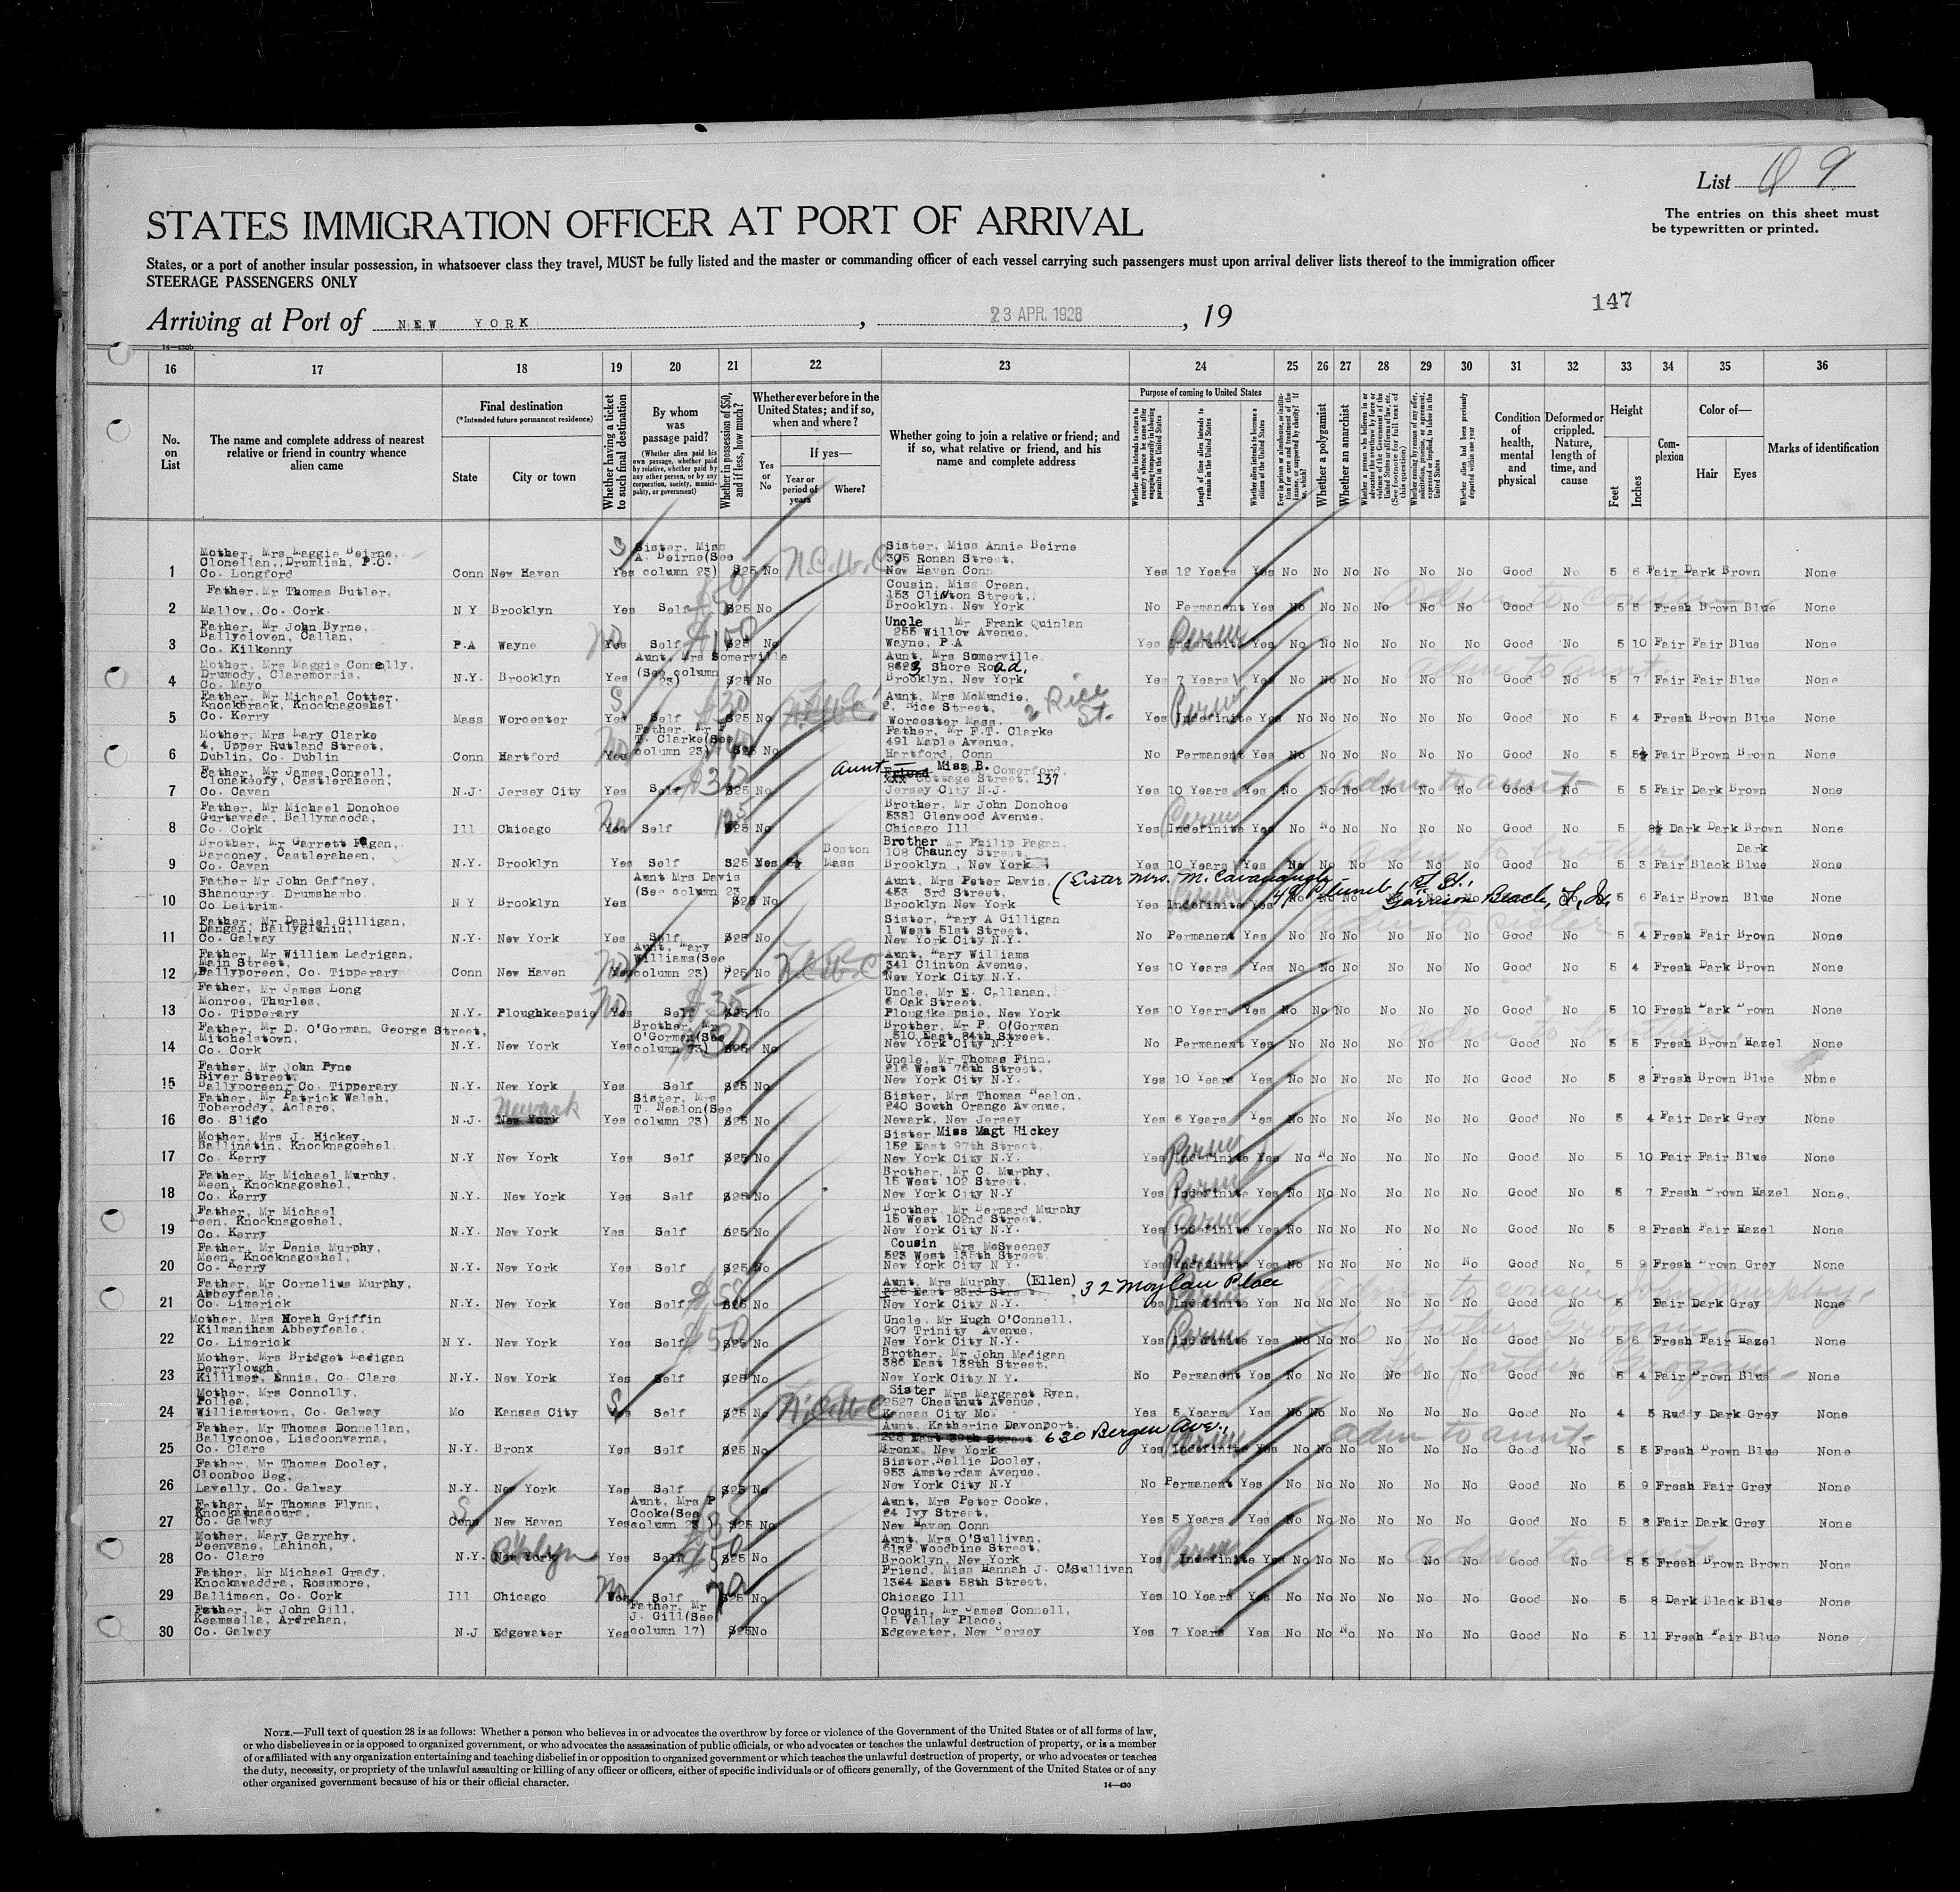 List 9
The entries on this sheet must
be typewritten or printed.
STATES IMMIGRATION OFFICER AT PORT OF ARRIVAL
States, or a port of another insular possession, in whatsoever class they travel, MUST be fully listed and the master or commanding officer of each vessel carrying such passengers must upon arrival deliver lists thereof to the immigration officer
STEERAGE PASSENGERS ONLY
147
Arriving at Port of NEW YORK, 23 APR. 1928, 19
16 17 18 19 20 21 22 23 24 25 26 27 28 29 30 31 32 33 34 35 36
No. on List
The name and complete address of nearest relative or friend in country whence alien came
Final destination
(*Intended future permanent residence)
State
City or town
Whether having a ticket to such final destination
By whom was passage paid?
(Whether alien paid his own passage, whether paid by relative, whether paid by any other person, or by any corporation, society, municipality, or government)
Whether in possession of $50, and if less, how much?
Whether ever before in the United States; and if so, when and where?
Yes or No
If yes—
Year or period of years
Where?
Whether going to join a relative or friend; and if so, what relative or friend, and his name and complete address
Purpose of coming to United States
Whether alien intends to return to country whence he came after engaging temporarily in laboring pursuits in the United States
Length of time alien intends to remain in the United States
Whether alien intends to become a citizen of the United States
Whether a polygamist
Whether an anarchist
Condition of health, mental and physical
Deformed or crippled. Nature, length of time, and cause
Height
Feet
Inches
Complexion
Color of—
Hair
Eyes
Marks of identification
1 Mother, Mrs Maggie Beirne, Clonellan, Drumlish, P.O. Co. Longford Conn New Haven S Yes Sister, Miss A. Beirne(See column 23) $25 No Sister, Miss Annie Beirne 395 Ronan Street, New Haven Conn Yes 12 Years Yes No No No No No No Good No 5 6 Fair Dark Brown None
2 Father, Mr Thomas Butler, Mallow, Co. Cork. N Y Brooklyn Yes Self $50 $25 No Cousin, Miss Crean, 153 Clinton Street, Brooklyn, New York No Permanent Yes No No No No No No Good No 5 5 Fresh Brown Blue None
3 Father, Mr John Byrne, Ballycloven, Callan, Co. Kilkenny P.A Wayne No Yes Self $100 $25 No Uncle Mr Frank Quinlan 255 Willow Avenue, Wayne, P.A Yes Indefinite Perm Yes No No No No No No Good No 5 10 Fair Fair Blue None
4 Mother, Mrs Maggie Connelly, Drumody, Claremorris, Co. Mayo N.Y. Brooklyn Yes Aunt, Mrs Somerville (See column 23) $25 No Aunt, Mrs Somerville, 8623 Shore Road, Brooklyn, New York Yes 7 Years Yes No No No No No No Good No 5 7 Fair Fair Blue None
5 Father, Mr Michael Cotter, Knockbrack, Knocknagoshel Co. Kerry Mass Worcester S Yes Self $30 $25 No Aunt, Mrs McMundie, 2, Rice Street, Worcester Mass. 2 Rice St. Yes Indefinite Perm Yes No No No No No No Good No 5 4 Fresh Brown Blue None
6 Mother, Mrs Mary Clarke 4, Upper Rutland Street, Dublin, Co. Dublin Conn Hartford No Yes Father, Mr F T. Clarke(See column 23) $25 No Father, Mr F.T. Clarke 491 Maple Avenue, Hartford, Conn No Permanent Yes No No No No No No Good No 5 5½ Fair Brown Brown None
7 Father, Mr James Connell, Clonakeefy, Castleraheen, Co. Cavan N.J. Jersey City Yes Self $30 $25 No Aunt Miss B. Comerford, 137 Cottage Street, Jersey City N.J. Yes 10 Years Yes No No No No No No Good No 5 5 Fair Dark Brown None Adm to aunt
8 Father, Mr Michael Donohoe Gurtavada, Ballymacoda, Co. Cork Ill Chicago No Yes Self $25 No Brother, Mr John Donohoe 5331 Glenwood Avenue, Chicago Ill Yes Indefinite Perm Yes No No No No No No Good No 5 8½ Dark Dark Brown None
9 Brother, Mr Garrett Fagan, Darconey, Castleraheen, Co. Cavan N.Y. Brooklyn Yes Self $25 Yes Boston Mass Brother Mr Philip Fagan, 108 Chauncy Street, Brooklyn, New York Yes 10 Years Yes No No No No No No Good No 5 3 Fair Black Dark Blue None
10 Father Mr John Gaffney, Shancurry, Drumshambo, Co Leitrim. N Y Brooklyn Yes Aunt Mrs Davis (See column 23 $25 No Aunt, Mrs Peter Davis, 453 3rd Street, Brooklyn New York (Sister Mrs. M. Cavanaugh 49 Plumb 1st St., Garrison Beach, L. Is. Yes Indefinite Yes No No No Good No 5 6 Fair Brown Blue None
11 Father, Mr Daniel Gilligan, Dangan, Ballyglunin, Co. Galway N.Y. New York Yes Self $25 No Sister, Mary A Gilligan 1 West 51st Street, New York City N.Y. No Permanent Yes No No No No No No Good No 5 4 Fresh Fair Brown None
12 Father, Mr William Ladrigan, Main Street, Ballyporeen, Co. Tipperary Conn New Haven No Yes Aunt, Mary Williams(See column 23) $25 No Aunt, Mary Williams 341 Clinton Avenue, New York City N.Y. Yes 10 Years Yes No No No No No No Good No 5 4 Fresh Dark Brown None
13 Father, Mr James Long Monroe, Thurles, Co. Tipperary N.Y. Ploughkeepsie No Yes Self $35 $25 No Uncle, Mr E. Callanan, 6 Oak Street, Plougikeepsie, New York Yes 10 Years Yes No No No No No No Good No 5 10 Fresh Dark Brown None
14 Father, Mr D. O'Gorman, George Street, Mitchelstown, Co. Cork N.Y. New York Yes Brother, Mr O'Gorman(See column 23) $30 $25 No Brother, Mr P. O'Gorman 510 East 84th Street, New York City N.Y No Permanent Yes No No No No No No Good No 5 5 Fresh Brown Hazel None
15 Father, Mr John Pyne River Street, Ballyporeen, Co. Tipperary N.Y. New York Yes Self $25 No Uncle, Mr Thomas Finn, 216 West 76th Street, New York City N.Y. Yes 10 Years Yes No No No No No No Good No 5 8 Fresh Brown Blue None
16 Father, Mr Patrick Walsh, Toberoddy, Aclare, Co. Sligo N.J. Newark New York Yes Sister, Mrs T. Nealon(See column 23) $25 No Sister, Mrs Thomas Nealon, 240 South Orange Avenue, Newark, New Jersey Yes 6 Years Yes No No No No No No Good No 5 4 Fair Dark Grey None
17 Mother, Mrs J. Hickey, Ballinatin, Knocknagoshel Co. Kerry N.Y New York Yes Self $25 No Sister Miss Magt Hickey 152 East 97th Street, New York City N.Y. Yes Indefinite Perm Yes No No No No No No Good No 5 10 Fair Fair Blue None
18 Father, Mr Michael Murphy, Meen, Knocknagoshel, Co. Kerry N.Y. New York Yes Self $25 No Brother, Mr C. Murphy, 15 West 102 Street, New York City N.Y Yes Indefinite Perm Yes No No No No No No Good No 5 7 Fresh Brown Hazel None.
19 Father, Mr Michael Meen, Knocknagoshel, Co. Kerry N.Y. New York Yes Self $25 No Brother, Mr Bernard Murphy 15 West 102nd Street, New York City N.Y. Yes Indefinite Perm Yes No No No No No No Good No 5 8 Fresh Fair Hazel None
20 Father, Mr Denis Murphy, Meen, Knocknagoshel, Co. Kerry N.Y. New York Yes Self $25 No Cousin Mrs McSweeney 523 West 135th Street, New York City N.Y. Yes Indefinite Perm Yes No No No No No No Good No 5 9 Fresh Brown Grey None
21 Father, Mr Cornelius Murphy, Abbeyfeale, Co. Limerick N.Y. New York Yes Self $58 $25 No Aunt, Mrs Murphy, (Ellen) 226 East 83rd Street, 32 Moylan Place New York City N.Y. Yes Indefinite Yes No No No No No No Good No 5 Fair Dark Grey None Adm to cousin John Murphy.
22 Mother, Mrs Norah Griffin Kilmaniham Abbeyfeale, Co. Limerick N Y. New York Yes Self $50 $25 No Uncle, Mr Hugh O'Connell, 907 Trinity Avenue, New York City N.Y. Yes Indefinite Perm Yes No No No No No No Good No 5 6 Fresh Fair Hazel None
23 Mother, Mrs Bridget Madigan Derrylough, Killimer, Ennis, Co. Clare N.Y. New York Yes Self $25 No Brother, Mr John Madigan 386 East 138th Street, New York City N Y. No Permanent Yes No No No No No No Good No 5 4 Fair Brown Blue None
24 Mother, Mrs Connolly, Pollea, Williamstown, Co. Galway Mo Kansas City S Yes Self $25 No Sister Mrs Margaret Ryan, 2527 Chestnut Avenue, Kansas City Mo. Yes 5 Years Yes No No No No No No Good No 4 5 Ruddy Dark Grey None
25 Father, Mr Thomas Donnellan, Ballyconoe, Lisdoonvarna, Co. Clare N.Y. Bronx Yes Self $25 No Aunt, Katherine Davonport, 223 East 39th Street 630 Bergen Ave., Bronx, New York Yes Indefinite Perm Yes No No No No No No Good No 5 5 Fresh Brown Blue None Adm to aunt
26 Father, Mr Thomas Dooley, Cloonboo Beg, Lavelly, Co. Galway N.Y. New York Yes Self $25 No Sister, Nellie Dooley, 953 Amsterdam Avenue, New York City N.Y No Permanent Yes No No No No No No Good No 5 9 Fresh Fair Grey None
27 Father, Mr Thomas Flynn, Knockannacura, Co. Galway S Conn New Haven Yes Aunt, Mrs P Cooke(See column 23) $25 No Aunt, Mrs Peter Cooke, 24 Ivy Street, New Haven Conn Yes 5 Years Yes No No No No No No Good No 5 8 Fair Dark Grey None
28 Mother, Mary Garrahy, Deenvane, Lahinch, Co. Clare N.Y. New York B'klyn Yes Self $50 $25 No Aunt, Mrs O'Sullivan, 6132 Woodbine Street, Brooklyn, New York Yes Indefinite Perm Yes No No No No No No Good No 5 5 Fresh Brown Brown None
29 Father, Mr Michael Grady, Knockawaddra, Rossmore, Ballineen, Co. Cork Ill Chicago No Yes Self $25 No Friend, Miss Hannah J. O'Sullivan 1364 East 58th Street, Chicago Ill Yes 10 Years Yes No No No No No No Good No 5 8 Dark Black Blue None
30 Father, Mr John Gill, Keamsella, Ardrahan, Co. Galway N.J Edgewater Yes Father, Mr J. Gill(See column 17) $25 No Cousin, Mr James Connell, 15 Valley Place, Edgewater, New Jersey Yes 7 Years Yes No No No No No No Good No 5 11 Fresh Fair Blue None
NOTE.—Full text of question 28 is as follows: Whether a person who believes in or advocates the overthrow by force or violence of the Government of the United States or of all forms of law,
or who disbelieves in or is opposed to organized government, or who advocates the assassination of public officials, or who advocates or teaches the unlawful destruction of property, or is a member
of or affiliated with any organization entertaining and teaching disbelief in or opposition to organized government or which teaches the unlawful destruction of property, or who advocates or teaches
the duty, necessity, or propriety of the unlawful assaulting or killing of any officer or officers, either of specific individuals or of officers generally, of the Government of the United States or of any
other organized government because of his or their official character.
14—430